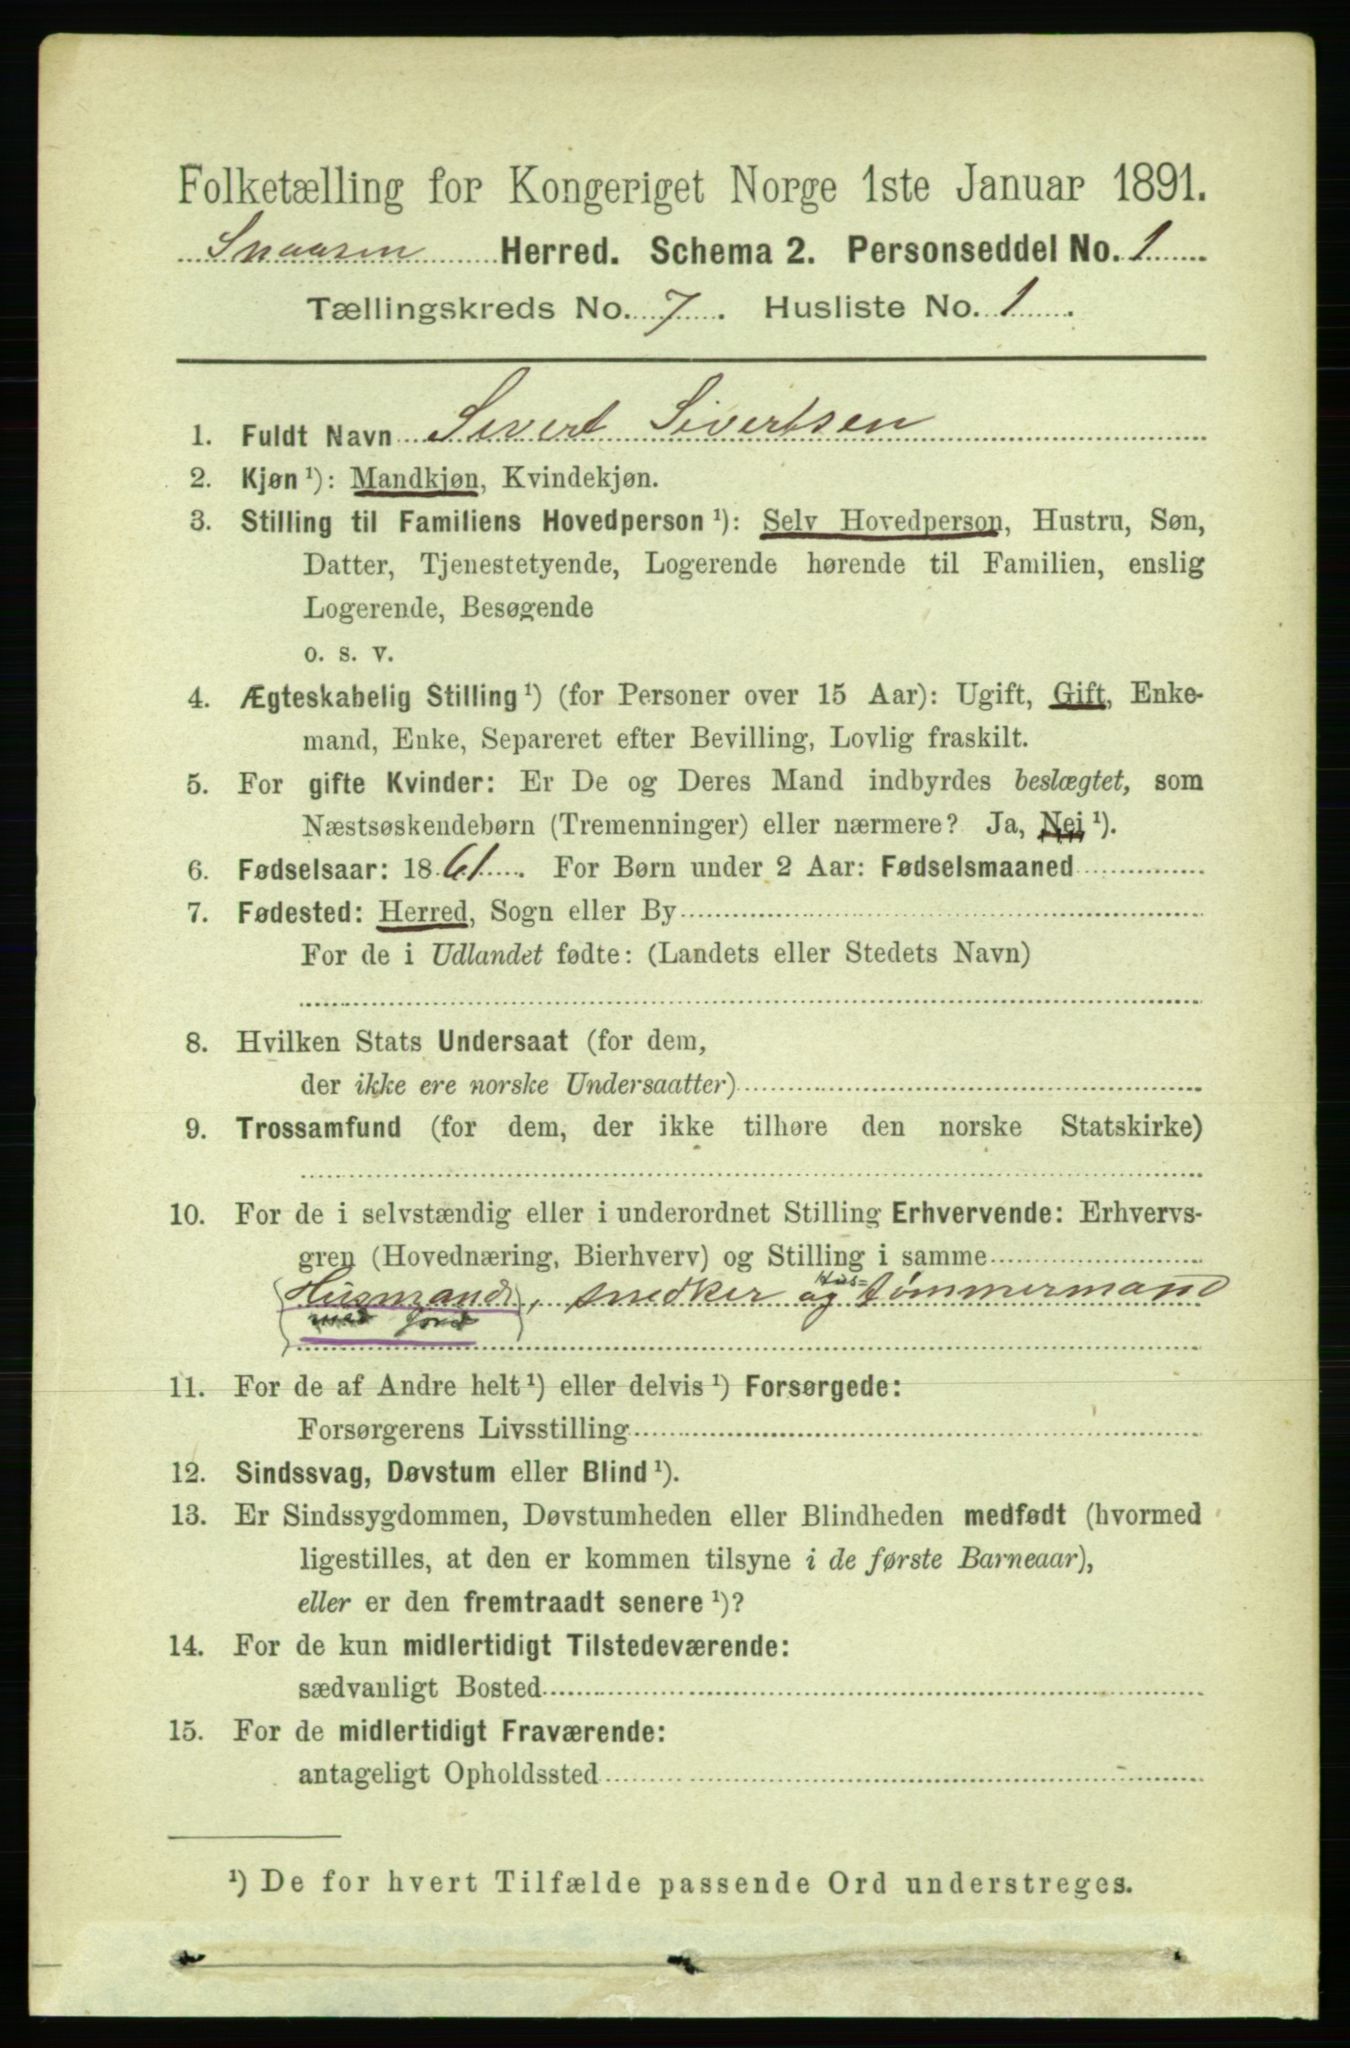 Folketælling for Kongeriget Norge 1ste Januar 1891.
Snaasen Herred. Schema 2. Personseddel No. 1
Tællingskreds No. 7. Husliste No. 1.
1. Fuldt Navn Sivert Sivertsen
2. Kjøn ¹): Mandkjøn, Kvindekjøn.
3. Stilling til Familiens Hovedperson ¹): Selv Hovedperson, Hustru, Søn,
Datter, Tjenestetyende, Logerende hørende til Familien, enslig
Logerende, Besøgende
o. s. v.
4. Ægteskabelig Stilling ¹) (for Personer over 15 Aar): Ugift, Gift, Enke-
mand, Enke, Separeret efter Bevilling, Lovlig fraskilt.
5. For gifte Kvinder: Er De og Deres Mand indbyrdes beslægtet, som
Næstsøskendebørn (Tremenninger) eller nærmere? Ja, Nei ¹).
6. Fødselsaar: 1861. For Børn under 2 Aar: Fødselsmaaned
7. Fødested: Herred, Sogn eller By
For de i Udlandet fødte: (Landets eller Stedets Navn)
8. Hvilken Stats Undersaat (for dem,
der ikke ere norske Undersaatter)
9. Trossamfund (for dem, der ikke tilhøre den norske Statskirke)
10. For de i selvstændig eller i underordnet Stilling Erhvervende: Erhvervs-
gren (Hovednæring, Bierhverv) og Stilling i samme
Husmand, snedker og Hus=tømmermand
med Jord
11. For de af Andre helt ¹) eller delvis ¹) Forsørgede:
Forsørgerens Livsstilling
12. Sindssvag, Døvstum eller Blind ¹).
13. Er Sindssygdommen, Døvstumheden eller Blindheden medfødt (hvormed
ligestilles, at den er kommen tilsyne i de første Barneaar),
eller er den fremtraadt senere ¹)?
14. For de kun midlertidigt Tilstedeværende:
sædvanligt Bosted
15. For de midlertidigt Fraværende:
antageligt Opholdssted
¹) De for hvert Tilfælde passende Ord understreges.